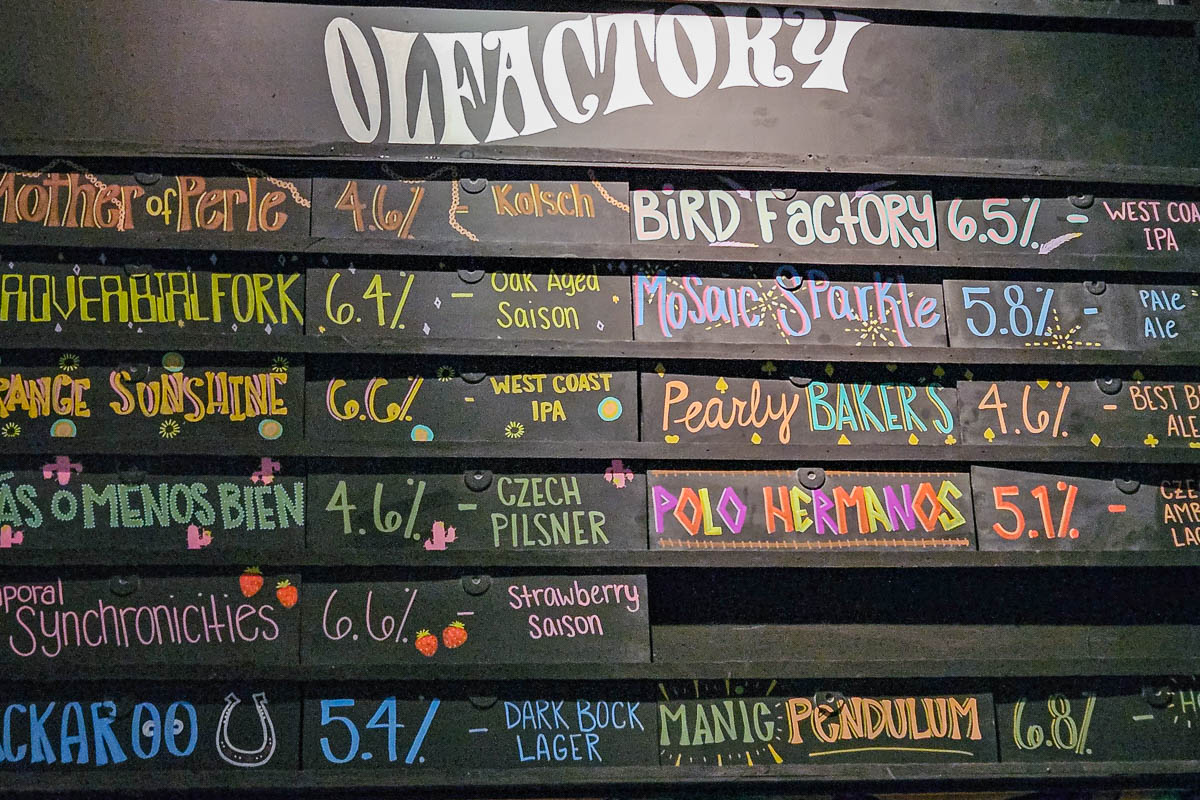 OLFACTORY
Mother of Perle 4.6% - Kolsch
BiRD FactoRY 6.5% - WEST COA
IPA
ROVERBIAL FORK 6.4% - Oak Aged
Saison
Mosaic SParkle 5.8% - PAle
Ale
RANGE SUNSHINE 6.6% - WEST COAST
IPA
Pearly BAKERS 4.6% - BEST B
ALE
ÁS O MENOS BIEN 4.6% - CZECH
PILSNER
POLO HERMANOS 5.1% - CZE
AMB
LAG
poral
Synchronicities 6.6% - Strawberry
Saison
CKAROO 5.4% - DARK BOCK
LAGER
MANIC PENDULUM 6.8% - H